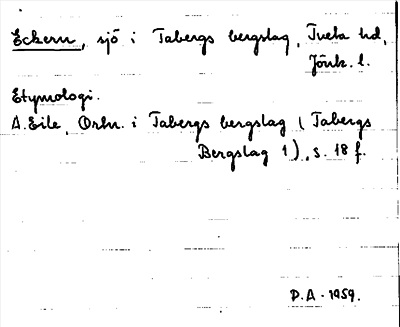 Eckern, sjö i Tabergs bergslag, Tveta hd,
Jönk. l.
Etymologi.
A. Eile, Ortn. i Tabergs bergslag (Tabergs
Bergslag 1), s. 18 f.
P.A. 1959.